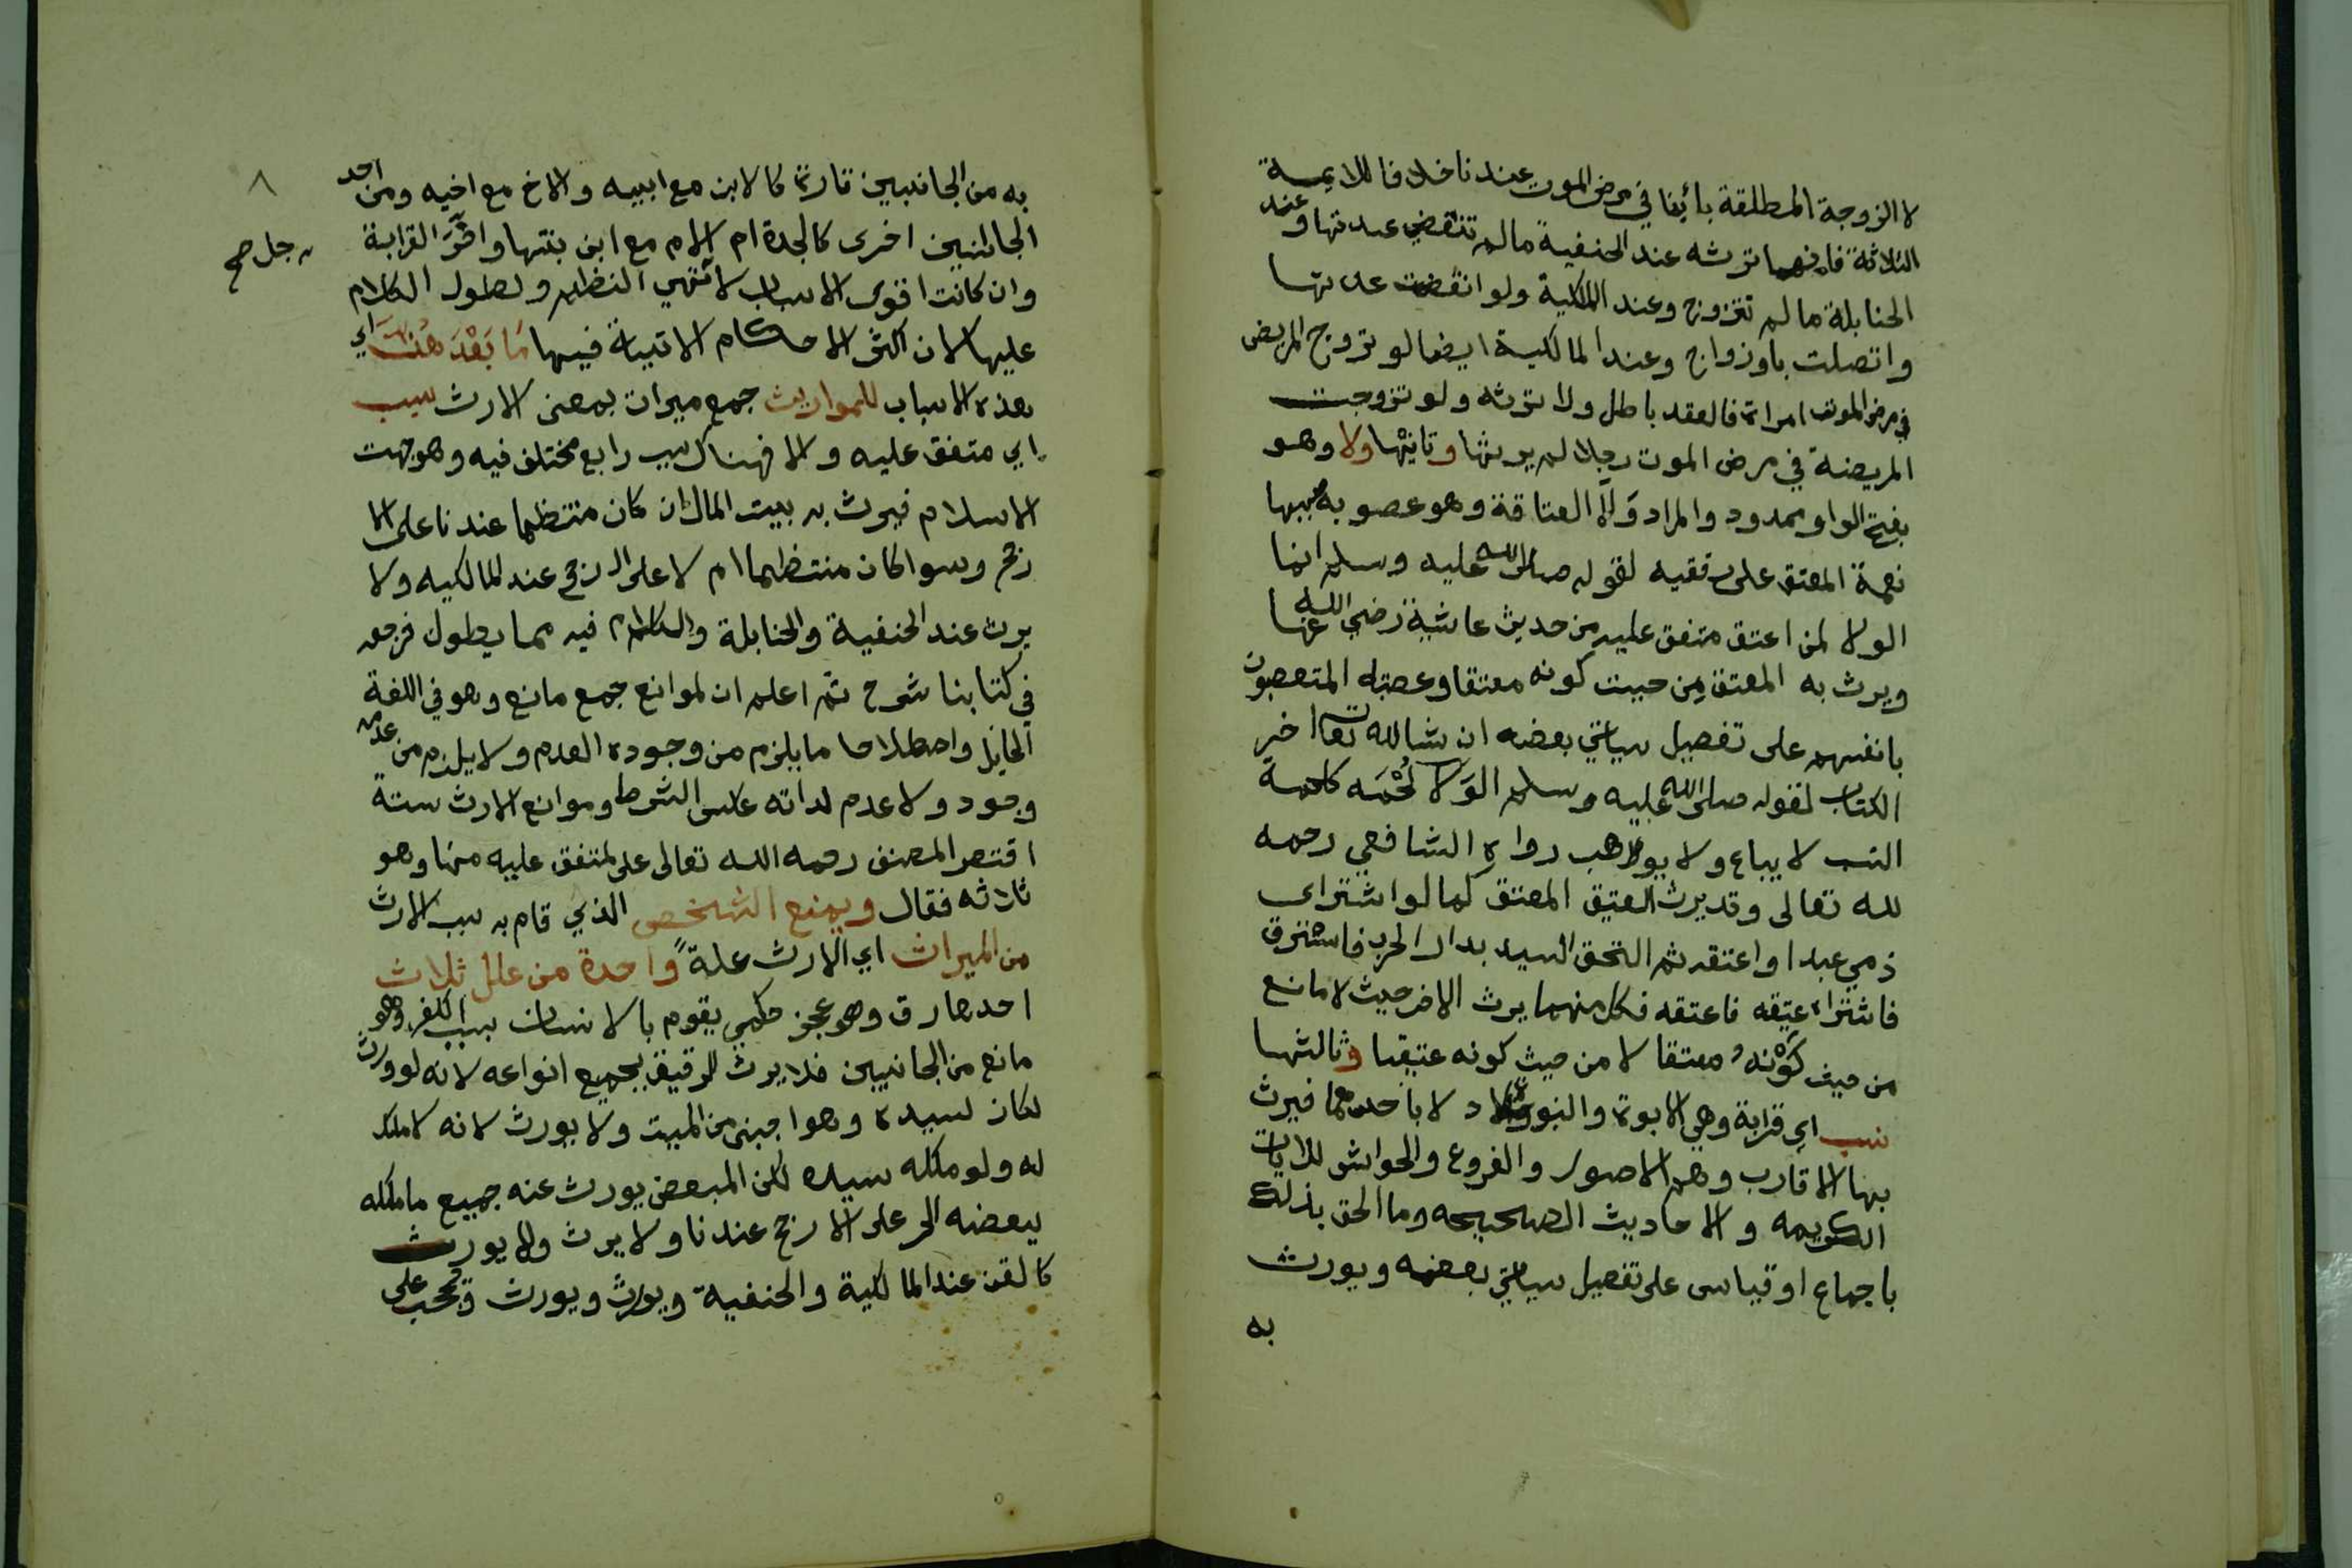 لا الزوجة المطلقة بائنا في مرض الموت عندنا خلافا للايمة
الثلاثة فانهما ترثه عند الحنفية مالم تنقضي عدتها وعند
الحنابلة مالم تتزوج وعند المالكية ولو انقضت عدتها
واتصلت بأوزواج وعند المالكية ايضا لو تزوج المريض
في مرض الموت امراة فالعقد باطل ولا ترثه ولو تزوجت
المريضة في مرض الموت رجلا لم يرثها وثانيها ولا وهو
بفتح الواو ممدود والمراد ولآ العتاقة وهو عصوبة سببها
نعمة المعتق على رفقيه لقوله صلى الله عليه وسلم انما
الولا لمن اعتق متفق عليه من حديث عائشة رضي الله عنها
ويرث به المعتق من حيث كونه معتقا وعصبته المتعصبون
بانفسهم على تفصيل سياتي بعضه ان شا الله تعا اخر
الكتاب لقوله صلى الله عليه وسلم الوَلا لُحْمَه كلحمة
النسب لا يباع ولا يوهب رواه الشافعي رحمه
لله تعالى وقد يرث العتيق المعتق كما لو اشترى
ذمي عبدا واعتقه ثم التحق السيد بدار الحرب فاسترق
فاشتراه عتيقه فاعتقه فكل منهما يرث الاخر حيث لا مانع
من حيث كَوْنه معتقا لا من حيث كونه عتيقا وثالثها
نسب اي قرابة وهي الابوة والبنوة لا باحدهما فيرث
بها الاقارب وهم الاصول والفروع والحواشي للايات
الكريمه والاحاديث الصحيحه وما الحق بذلك
باجماع او قياس على تفصيل سياتي بعضه ويورث
به
٨
به من الجانبين تارة كالابن مع ابيه والاخ مع اخيه ومن احد
الجانبين اخرى كالجدة ام الام مع ابن بنتها واخَّرَ القرابة
رجل صح
وان كانت اقوى الاسباب لا النظم ولطول الكلام
عليها لان اكثر الاحكام الاتية فيها مَا بَعْدَ هُنَّ اي
هذه الاسباب للمواريث جمع ميراث بمعنى الارث سبب
اي متفق عليه والا فهناك سبب رابع مختلف فيه وهو جهت
الاسلام فيرث به بيت المال ان كان منتظما عندنا على الا
رجح وسوا كان منتظما ام لا على الارجح عند المالكيه ولا
يرث عند الحنفية والحنابلة والكلام فيه مما يطول فرجعه
في كتابنا شرح ثم اعلم ان لموانع جمع مانع وهو في اللغة
الحايل واصطلاحا ما يلزم من وجوده العدم ولا يلزم من عدمه
وجود ولا عدم لذاته عكس الشرط وموانع الارث ستة
اقتصر المصنف رحمه الله تعالى على لمتفق عليه منها وهو
ثلاثه فقال ويمنع الشخص الذي قام به سبب الارث
من الميراث اي الارث علةً واحدة من علل ثلاث
احدها رق وهو عجز حكمي يقوم بالانسان بسبب الكفر وهو
مانع من الجانبين فلا يرث للرقيق بجميع انواعه لانه لو ورث
لكان لسيده وهو اجنبي من الميت ولا يورث لانه لا ملك
له ولو ملكه سيده لكن المبعض يورث عنه جميع ما ملكه
ببعضه الحر على الارجح عندنا ولا يرث ولا يورث
كالقن عند المالكية والحنفية ويورث ويرث ويحجب على